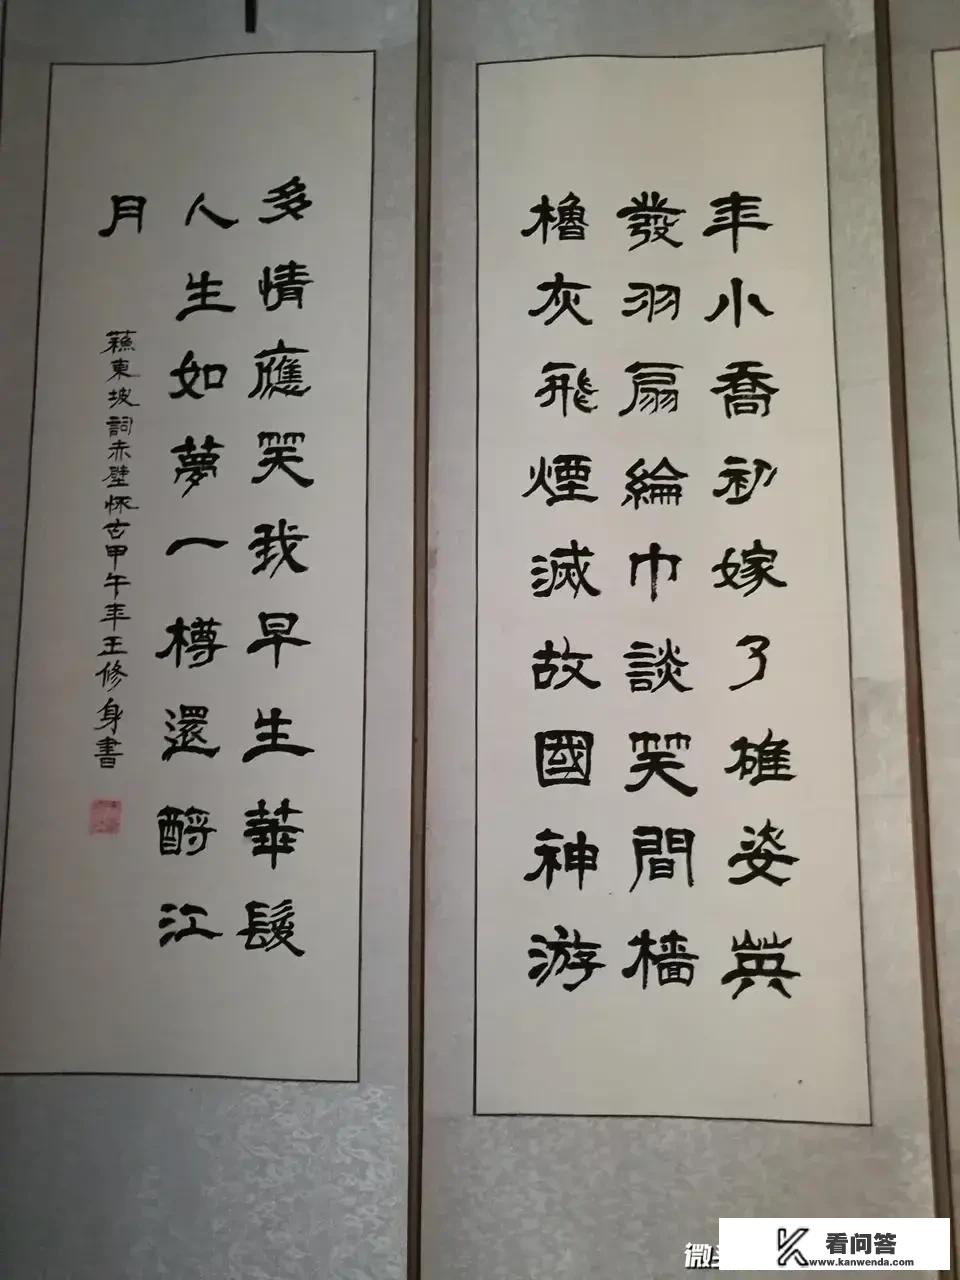 年小喬初嫁了雄姿英
發羽扇綸巾談笑間檣
櫓灰飛煙滅故國神游
多情應笑我早生華髮
人生如夢一樽還酹江
月
蘇東坡詞赤壁懷古甲午年王修身書
看问答
www.kanwenda.com